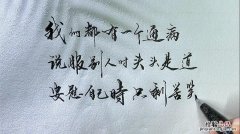 我们都有一个通病
说服别人时头头是道
安慰自己时只剩苦笑